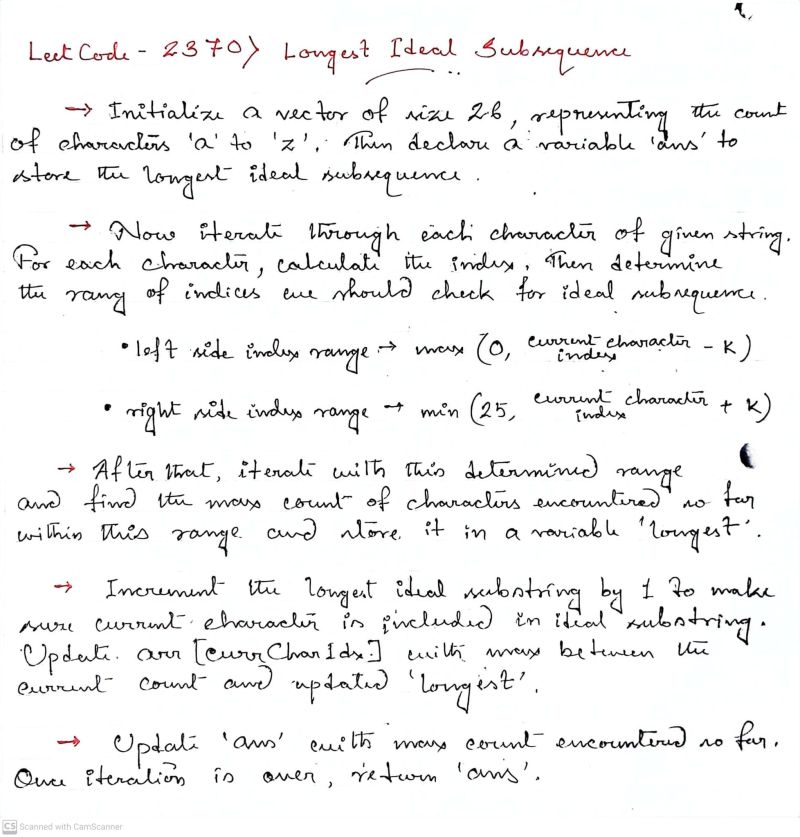 LeetCode - 2370> Longest Ideal Subsequence
→ Initialize a vector of size 26, representing the count
of characters 'a' to 'z'. Then declare a variable 'ans' to
store the longest ideal subsequence.
→ Now iterate through each character of given string.
For each character, calculate its index. Then determine
the rang of indices we should check for ideal subsequence.
• left side index range → max (0, current character index - K)
• right side index range → min (25, current character index + K)
→ After that, iterate with this determined range
and find the max count of characters encountered so far
within this range and store it in a variable 'longest'.
→ Increment the longest ideal substring by 1 to make
sure current character is included in ideal substring.
Update arr [currCharIdx] with max between the
current count and updated 'longest'.
→ Update 'ans' with max count encountered so far.
Once iteration is over, return 'ans'.
CS Scanned with CamScanner